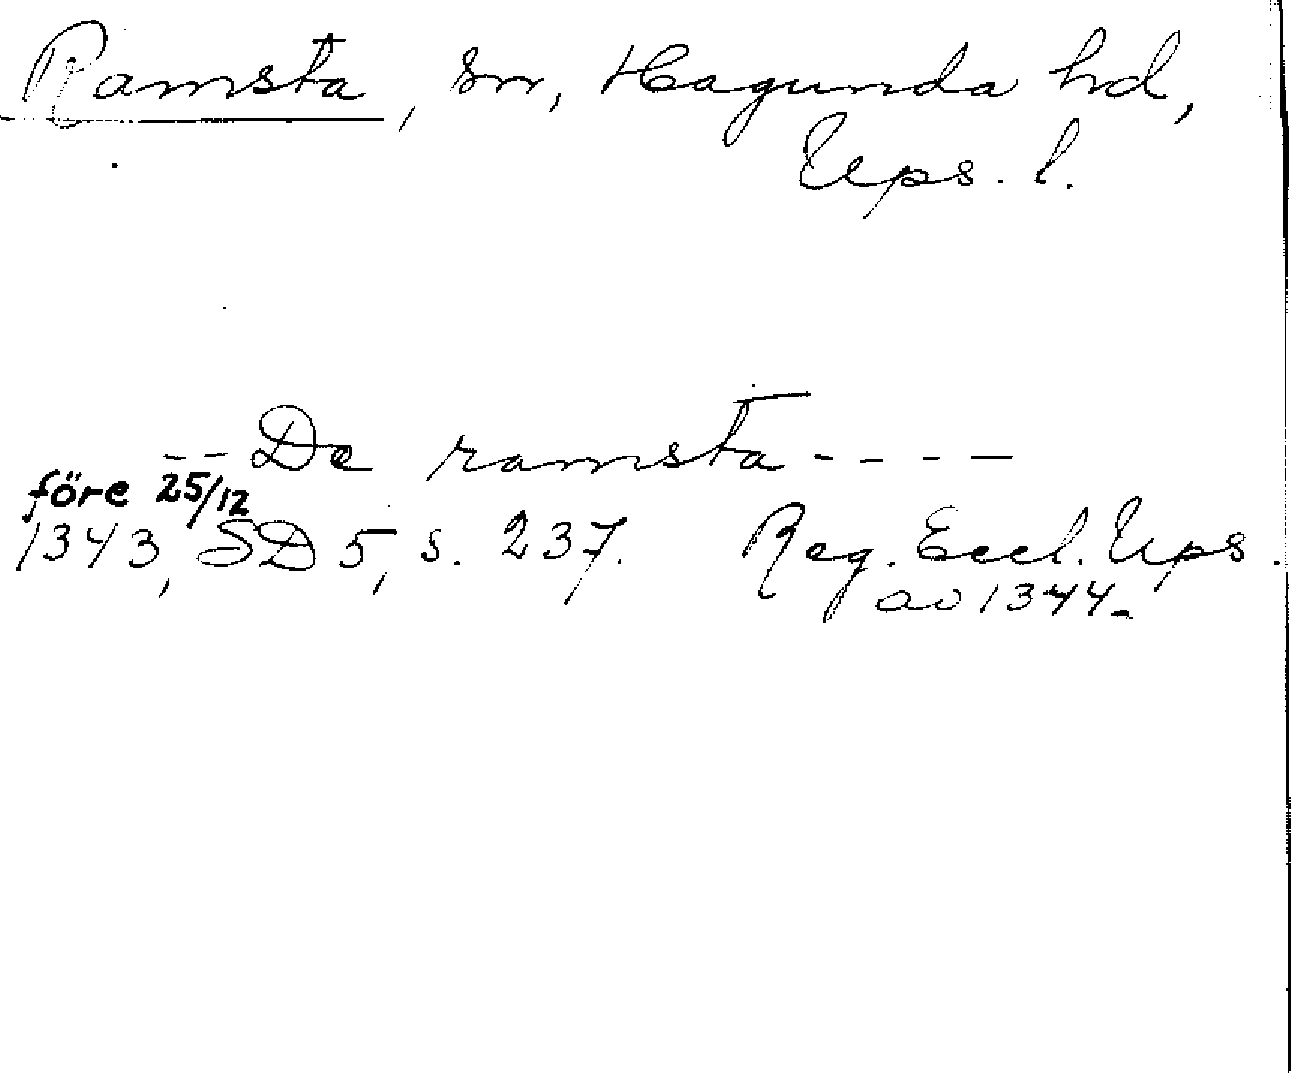 Ramsta, sn, Hagunda hd,
Ups. l.
-- De ramsta ----
före 25/12
1343, SD 5, s. 237. Reg. Eccl. Ups.
av 1344-